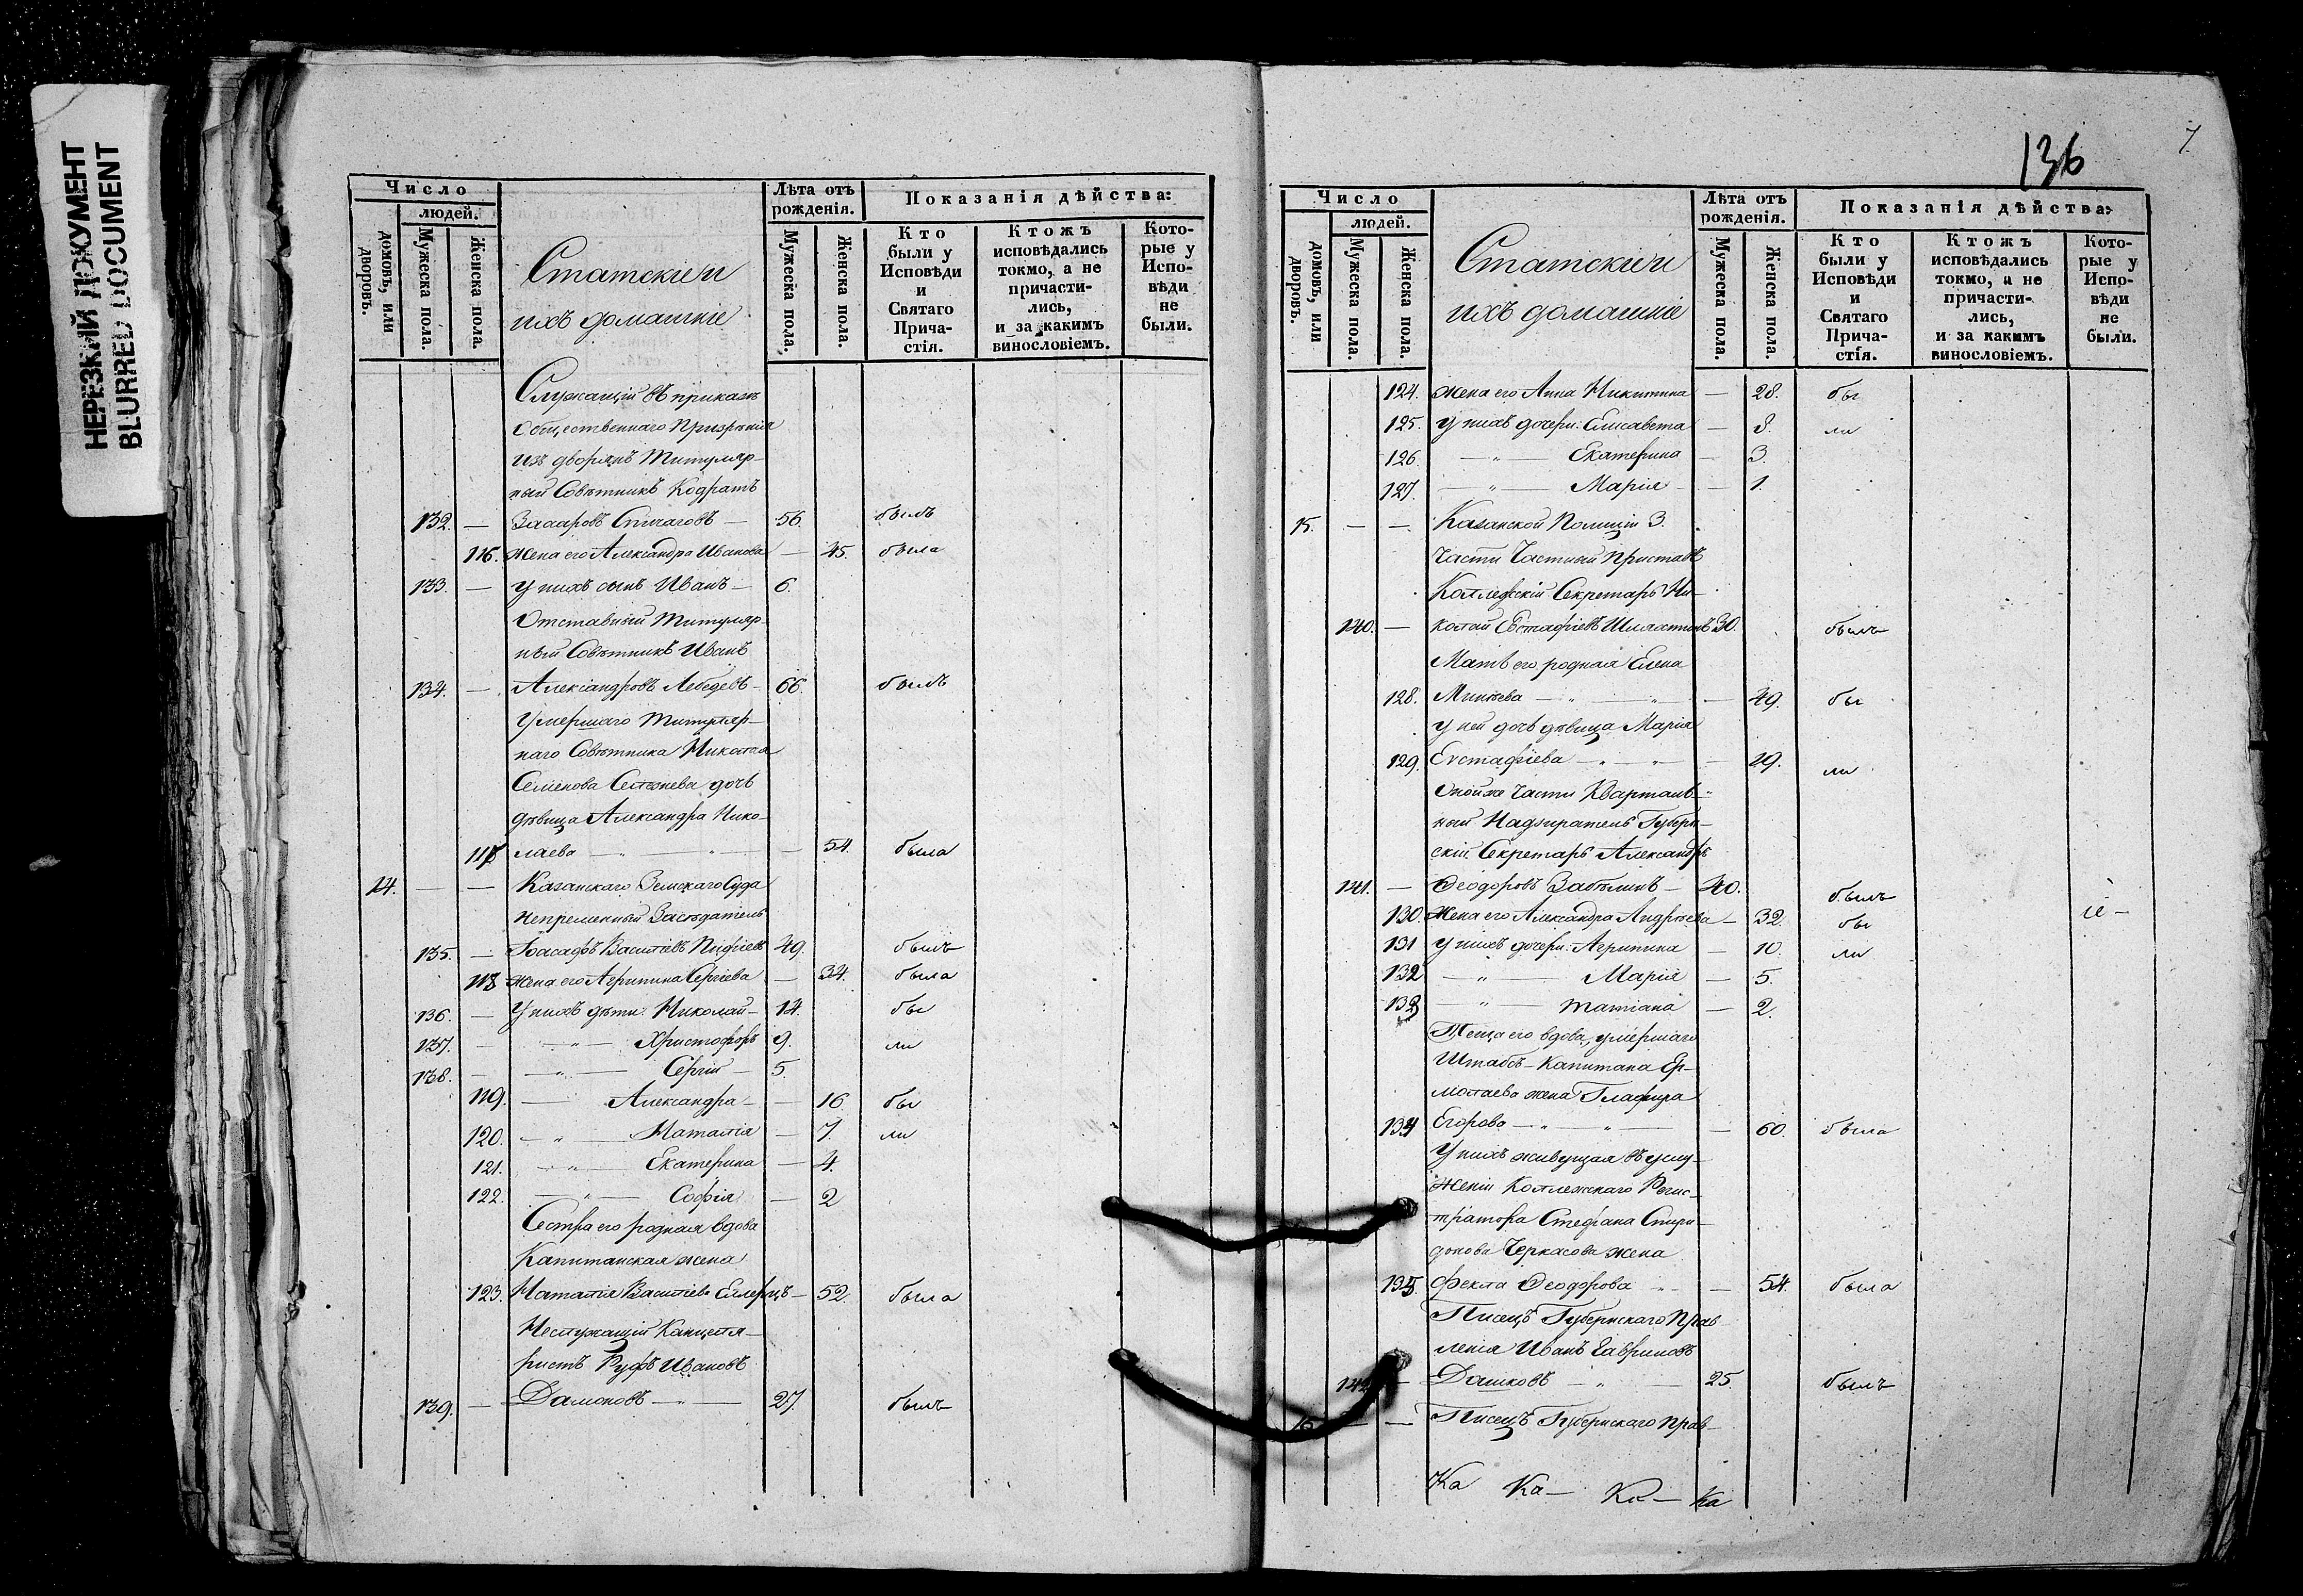 НЕРЕЗКИЙ ДОКУМЕНТ
BLURRED DOCUMENT
Число
людей.
домовъ, или дворовъ.
Мужеска пола.
Женска пола.
Статскіе и
ихъ домашніе
Лѣта отъ рожденія.
Мужеска пола.
Женска пола.
Показанія дѣйства:
Кто были у Исповѣди и Святаго Прича-стія.
Ктожъ исповѣдались токмо, а не причасти-лись, и за какимъ винословіемъ.
Кото-рые у Испо-вѣди не были.
Служащій въ приказѣ
Общественнаго Призрѣнія
изъ дворянъ Титуляр-
ный Совѣтникъ Кодратъ
132. — Захаровъ Спичаговъ — 56. былъ
116. жена его Александра Иванова — 45. была
133. — у нихъ сынъ Иванъ — 6.
Отставный Титуляр-
ный Совѣтникъ Иванъ
134. — Александровъ Лебедевъ — 66. былъ
Умершаго Титуляр-
наго Совѣтника Николая
Семенова дочь
дѣвица Александра Нико-
117 лаева — „ — „ — — 54. была
14. — — Казанскаго Земскаго Суда
Непременный Засѣдатель
135. — Іоасафъ Васильевъ 49. былъ
118 жена его Агрипина Сергіева — 34. была
136. — У нихъ дѣти: Николай — 14. бы
137. — — „ — Христофоръ 9. ли
138. — — „ — Сергій — 5.
119. — Александра — — 16. бы
120. — „ — Наталія — 7. ли
121. — „ — Екатерина — 4.
122. — „ — Софія — 2
Сестра его родная вдова
Капитанская жена
123. Наталія Васильева — 52. была
Неслужащій Канцеля-
ристъ Руфъ Ивановъ
139. — Дамоновъ — „ — 27. былъ
136
7
Число
людей.
домовъ, или дворовъ.
Мужеска пола.
Женска пола.
Статскіе и
ихъ домашніе
Лѣта отъ рожденія.
Мужеска пола.
Женска пола.
Показанія дѣйства:
Кто были у Исповѣди и Святаго Прича-стія.
Ктожъ исповѣдались токмо, а не причасти-лись, и за какимъ винословіемъ.
Кото-рые у Испо-вѣди не были.
124. жена его Анна Никитина — 28. бы
125. у нихъ дочери: Елисавета — 8. ли
126. — „ — Екатерина — 3.
127. — „ — Марія — — 1.
15. — — Казанской Полиціи 3.
части Частный Приставъ
Коллежскій Секретарь Ни-
140. — колай Евстафіевъ 30. былъ
Мать его родная Елена
128. — „ — „ — 49. бы
у ней дочь дѣвица Марія
129. Евстафіева — „ — „ — 29. ли
Оной же части Кварталь-
ный Надзиратель Губерн-
скій Секретарь Александръ
141. — Ѳеодоровъ Забѣлинъ — 40. былъ
130. Жена его Александра Андрѣева — 32. бы
131 у нихъ дочери: Агрипина — 10. ли
132 — „ — Марія — 5.
133 — „ — Татіана — 2.
Теща его вдова, умершаго
Штабсъ-Капитана Ер-
молаева жена Глафира
134 Егорова — „ — „ — — 60. была
У нихъ живущая въ услу-
женіи Коллежскаго Регис-
тратора Стефана Спири-
донова Черкасова жена
135. Фекла Ѳеодорова — 54. была
Писецъ Губернскаго Прав-
ленія Иванъ Гавриловъ
142 — Дашковъ — „ — 25. былъ
16 — — Писецъ Губернскаго Прав-
Ка Ка — Ка — Ка